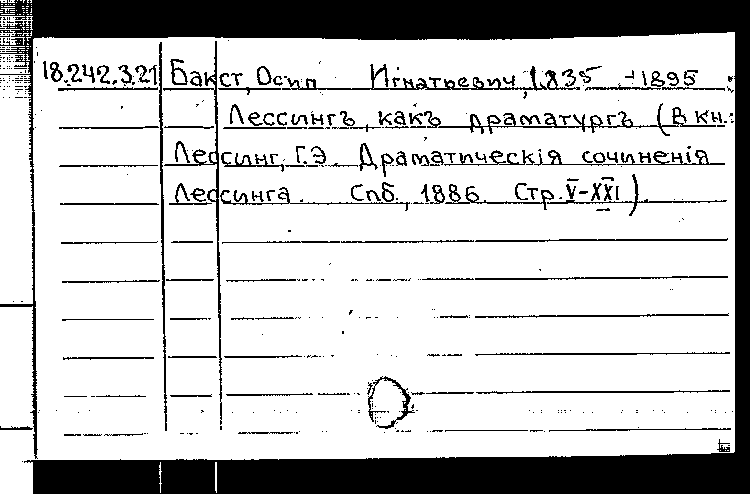 18.242.3.21 Бакст, Осип Игнатьевич, 1835-1895
Лессингъ, какъ драматургъ (В кн.:
Лессинг, Г.Э. Драматическія сочиненія
Лессинга. Спб., 1886. Стр. V-XXI).